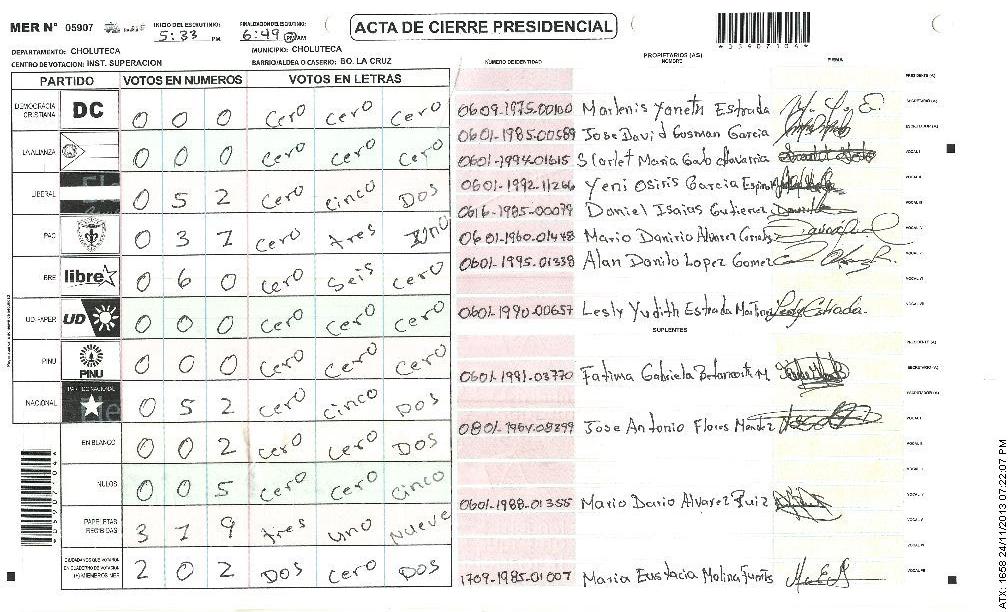 MER N° 05907
INICIO DEL ESCRUTINIO: 5:33 PM
FINALIZACION DEL ESCRUTINIO: 6:49 PM AM
ACTA DE CIERRE PRESIDENCIAL
DEPARTAMENTO: CHOLUTECA
MUNICIPIO: CHOLUTECA
CENTRO DE VOTACION: INST. SUPERACION
BARRIO/ALDEA O CASERIO: BO. LA CRUZ
PARTIDO VOTOS EN NUMEROS VOTOS EN LETRAS
DEMOCRACIA CRISTIANA DC 0 0 0 Cero Cero Cero
LA ALIANZA 0 0 0 Cero Cero Cero
LIBERAL 0 5 2 Cero Cinco DOS
PAC 0 3 1 Cero tres Uno
libre 0 6 0 Cero Seis Cero
UD-FAPER UD 0 0 0 Cero Cero Cero
PINU PINU 0 0 0 Cero Cero Cero
NACIONAL PARTIDO NACIONAL 0 5 2 Cero Cinco DOS
EN BLANCO 0 0 2 Cero Cero DOS
NULOS 0 0 5 Cero Cero Cinco
PAPELETAS RECIBIDAS 3 1 9 tres uno nueve
CIUDADANOS QUE VOTARON EN CUADERNO DE VOTACION (+) MIEMBROS MER 2 0 2 DOS Cero DOS
NÚMERO DE IDENTIDAD PROPIETARIOS (AS) NOMBRE FIRMA
PRESIDENTE (A)
0609-1975-00100 Marlenis Yaneth Estrada SECRETARIO (A)
0601-1985-00589 Jose David Gusman Garcia ESCRUTADOR (A)
0601-1994-01615 Scarlet Maria VOCAL I
0601-1992-11266 Yeni Osiris Garcia
0616-1985-00079 Daniel Isaias Gutierez
0601-1960-01448 Mario
0601-1995-01338 Alan Danilo Lopez Gomez
0601-1990-00657 Lesly Yudith Estrada Lesly Estrada
SUPLENTES
PRESIDENTE (A)
0601-1991-03770 Fatima Gabriela SECRETARIO (A)
ESCRUTADOR (A)
Jose Antonio Flores Mendez VOCAL I
0601-1988-01355 Mario Dario Alvarez Ruiz
1709-1985-01007 Maria Eustacia Molina
05907104
ATX: 1658 24/11/2013 07:22:07 PM